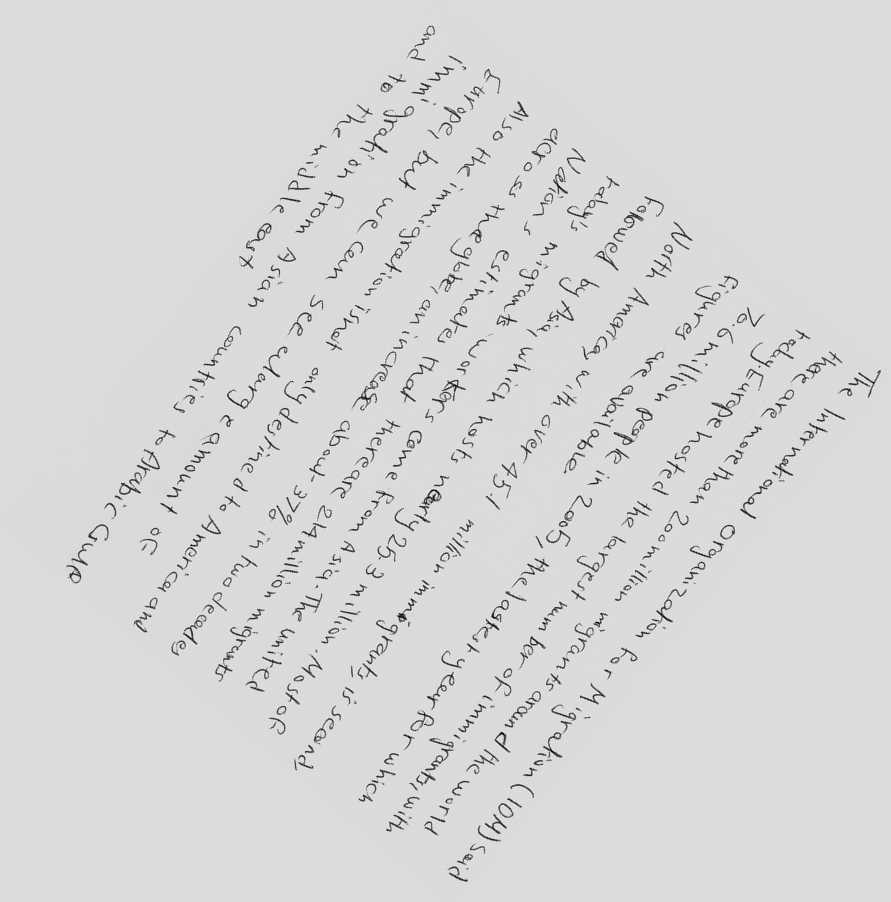 The International Organization for Migration (IOM) said
there are more than 200 million migrants around the world
today. Europe hosted the largest number of immigrants, with
70.6 million people in 2005, the lastest year for which
figures are available.
North America, with over 45.1 million immigrants, is second,
followed by Asia, which hosts nearly 25.3 million. Most of
today's migrants workers come from Asia. The United
Nations estimates that there are 214 million migrants
across the globe, an increase about 37% in two decades
Also the immigration is not only destined to America and
Europe, but we can see a large amount of
immigration from Asian countries to Arabic Gulf
and to the middle east